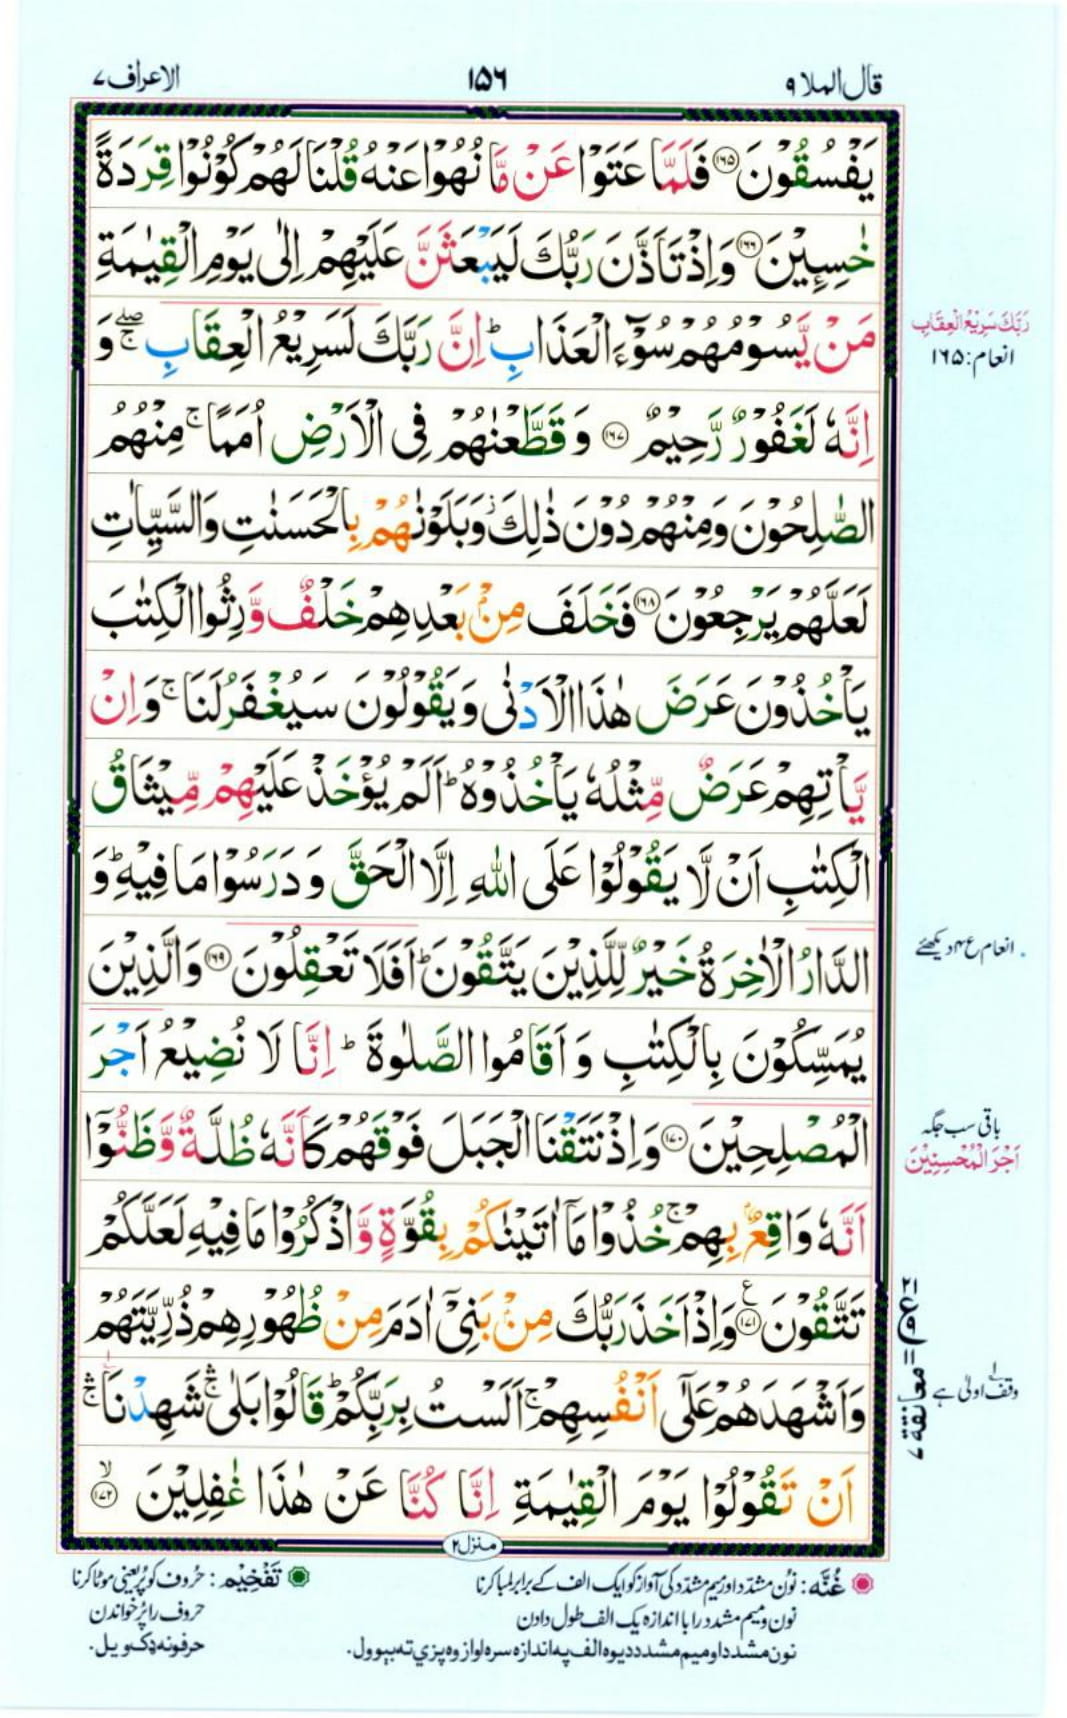 قال الملا ٩
١٥٦
الاعراف ٧
يَفْسُقُوْنَ ﴿١٦٥﴾ فَلَمَّا عَتَوْا عَنْ مَّا نُهُوْا عَنْهُ قُلْنَا لَهُمْ كُوْنُوْا قِرَدَةً
خٰسِـِٕيْنَ ﴿١٦٦﴾ وَاِذْ تَاَذَّنَ رَبُّكَ لَيَبْعَثَنَّ عَلَيْهِمْ اِلٰى يَوْمِ الْقِيٰمَةِ
مَنْ يَّسُوْمُهُمْ سُوْٓءَ الْعَذَابِ ؕ اِنَّ رَبَّكَ لَسَرِيْعُ الْعِقَابِ ۖۚ وَ
اِنَّهٗ لَغَفُوْرٌ رَّحِيْمٌ ﴿١٦٧﴾ وَقَطَّعْنٰهُمْ فِى الْاَرْضِ اُمَمًا ۚ مِنْهُمُ
الصّٰلِحُوْنَ وَمِنْهُمْ دُوْنَ ذٰلِكَ ز وَبَلَوْنٰهُمْ بِالْحَسَنٰتِ وَالسَّيِّاٰتِ
لَعَلَّهُمْ يَرْجِعُوْنَ ﴿١٦٨﴾ فَخَلَفَ مِنْۢ بَعْدِهِمْ خَلْفٌ وَّرِثُوا الْكِتٰبَ
يَاْخُذُوْنَ عَرَضَ هٰذَا الْاَدْنٰى وَيَقُوْلُوْنَ سَيُغْفَرُ لَنَا ۚ وَاِنْ
يَّاْتِهِمْ عَرَضٌ مِّثْلُهٗ يَاْخُذُوْهُ ؕ اَلَمْ يُؤْخَذْ عَلَيْهِمْ مِّيْثَاقُ
الْكِتٰبِ اَنْ لَّا يَقُوْلُوْا عَلَى اللّٰهِ اِلَّا الْحَقَّ وَدَرَسُوْا مَا فِيْهِ ؕ وَ
الدَّارُ الْاٰخِرَةُ خَيْرٌ لِّلَّذِيْنَ يَتَّقُوْنَ ؕ اَفَلَا تَعْقِلُوْنَ ﴿١٦٩﴾ وَالَّذِيْنَ
يُمَسِّكُوْنَ بِالْكِتٰبِ وَاَقَامُوا الصَّلٰوةَ ؕ اِنَّا لَا نُضِيْعُ اَجْرَ
الْمُصْلِحِيْنَ ﴿١٧٠﴾ وَاِذْ نَتَقْنَا الْجَبَلَ فَوْقَهُمْ كَاَنَّهٗ ظُلَّةٌ وَّظَنُّوْٓا
اَنَّهٗ وَاقِعٌۢ بِهِمْ ۚ خُذُوْا مَآ اٰتَيْنٰكُمْ بِقُوَّةٍ وَّاذْكُرُوْا مَا فِيْهِ لَعَلَّكُمْ
تَتَّقُوْنَ ﴿١٧١﴾ ع وَاِذْ اَخَذَ رَبُّكَ مِنْۢ بَنِىْٓ اٰدَمَ مِنْ ظُهُوْرِهِمْ ذُرِّيَّتَهُمْ
وَاَشْهَدَهُمْ عَلٰٓى اَنْفُسِهِمْ ۚ اَلَسْتُ بِرَبِّكُمْ ؕ قَالُوْا بَلٰى ۛۚ شَهِدْنَا ۛۚ
اَنْ تَقُوْلُوْا يَوْمَ الْقِيٰمَةِ اِنَّا كُنَّا عَنْ هٰذَا غٰفِلِيْنَ ﴿١٧٢﴾ ۙ
رَبَّكَ سَرِيْعُ الْعِقَابِ
انعام: ١٦٥
انعام ع ۴ دیکھئے
باقی سب جگہ
اَجْرَ الْمُحْسِنِيْنَ
معانقة ٧
وقف اولیٰ ہے
منزل ٢
غُنَّه: نون مشدد اور میم مشدد کی آواز کو ایک الف کے برابر لمبا کرنا
نون و میم مشدد را با اندازہ یک الف طول دادن
نون مشدد او میم مشدد د یوہ الف په اندازه سره اواز وه پزي ته بیوول.
تَفْخِيْم: حروف کو پُر یعنی موٹا کرنا
حروف را پُر خواندن
حرفونه ډک ویل.